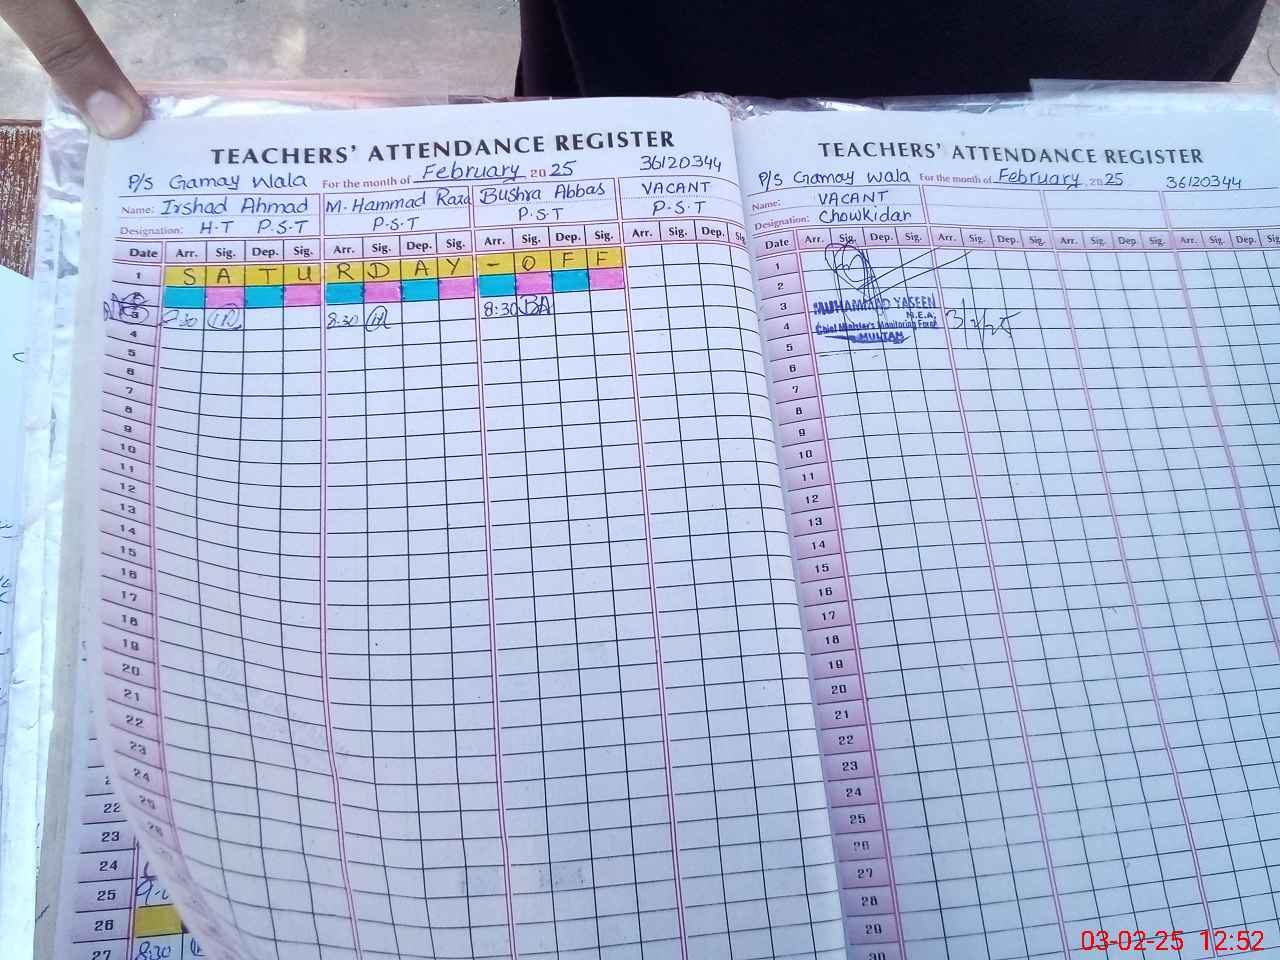 TEACHERS' ATTENDANCE REGISTER
P/S Gamay Wala For the month of February 2025 36120344
Name: Irshad Ahmad M. Hammad Raza Bushra Abbas VACANT
Designation: H.T P.S.T P.S.T P.S.T P.S.T
Date Arr. Sig. Dep. Sig. Arr. Sig. Dep. Sig. Arr. Sig. Dep. Sig. Arr. Sig. Dep.
1 S A T U R D A Y - O F F
3 8:30 8:30 BA
4
5
6
7
8
9
10
11
12
13
14
15
16
17
18
19
20
21
22
23
24
25
26
22
23
24
25
26
27 8:30
TEACHERS' ATTENDANCE REGISTER
P/S Gamay Wala For the month of February 2025 36120344
Name: VACANT
Designation: Chowkidar
Date Arr. Sig. Dep. Sig. Arr. Sig. Dep. Sig. Arr. Sig. Dep. Sig. Arr. Sig. Dep.
1
2
3 MUHAMMAD YASEEN
M.E.A.
4 Chief Minister's Monitoring Force 3/2/25
MULTAN
5
6
7
8
9
10
11
12
13
14
15
16
17
18
19
20
21
22
23
24
25
26
27
28
29
30
03-02-25 12:52